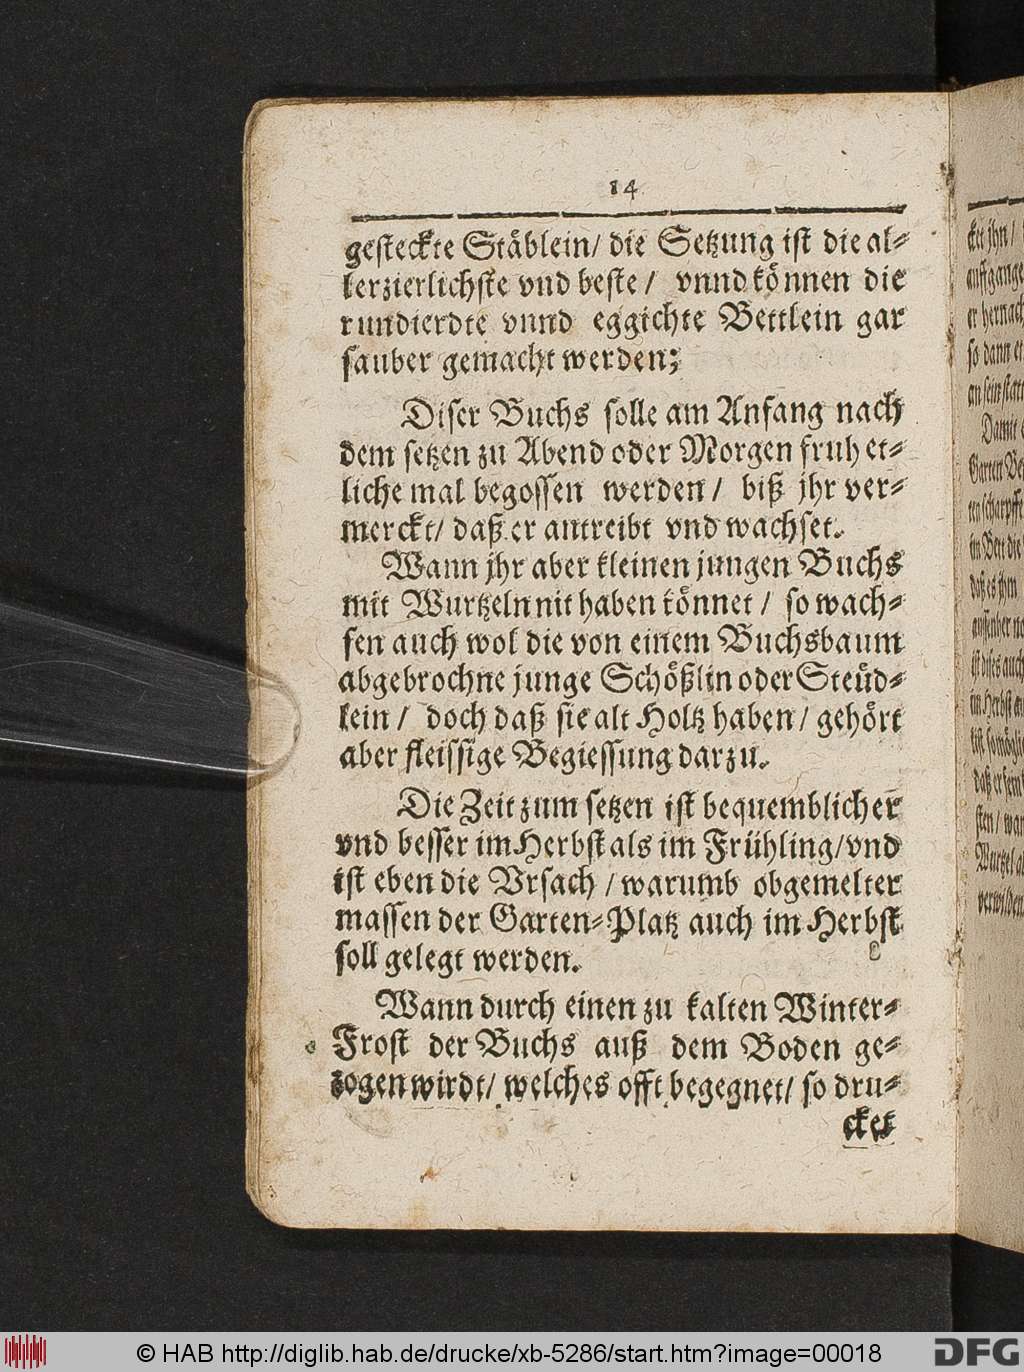 14
gesteckte Stäblein/ die Setzung ist die al-
lerzierlichste vnd beste / vnnd können die
rundierdte vnnd eggichte Bettlein gar
sauber gemacht werden;
Diser Buchs solle am Anfang nach
dem setzen zu Abend oder Morgen fruh et-
liche mal begossen werden / biß jhr ver-
merckt/ daß er antreibt vnd wachset.
Wann jhr aber kleinen jungen Buchs
mit Wurtzeln nit haben könnet / so wach-
sen auch wol die von einem Buchsbaum
abgebrochne junge Schößlin oder Steüd-
lein / doch daß sie alt Holtz haben / gehört
aber fleissige Begiessung darzu.
Die Zeit zum setzen ist bequemblicher
vnd besser im Herbst als im Frühling/vnd
ist eben die Vrsach / warumb obgemelter
massen der Garten-Platz auch im Herbst
soll gelegt werden.
Wann durch einen zu kalten Winter-
Frost der Buchs auß dem Boden ge-
zogen wirdt/ welches offt begegnet/ so dru-
cket
cket jhn /
auffgange
er hernach
so dann
an sein statt
Damit
Garten
im Bett die
daß es jhm
ist dises auch
im Herbst
daß er
sten / 
Wurtzel
verwilden
© HAB http://diglib.hab.de/drucke/xb-5286/start.htm?image=00018
DFG